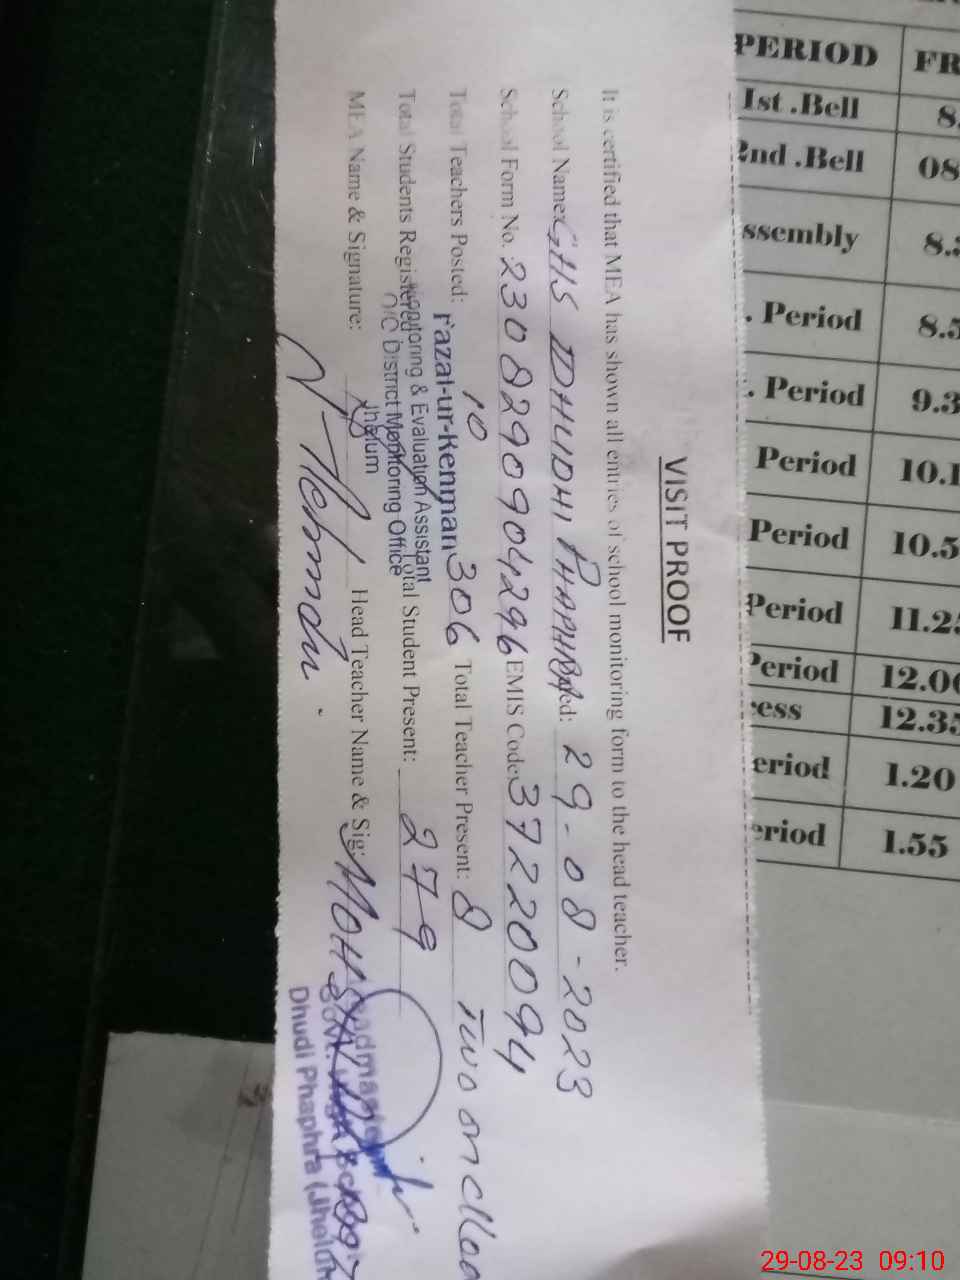 VISIT PROOF
It is certified that MEA has shown all entries of school monitoring form to the head teacher.
School Name: GHS DHUDHI PHAPHRA Dated: 29-08-2023
School Form No. 230829090904296 EMIS Code 37220094
Total Teachers Posted: 10 Total Teacher Present: 8 Two on
Total Students Registered 306 Total Student Present: 279
MEA Name & Signature: Head Teacher Name & Sig:
Fazal-ur-Rehman
Monitoring & Evaluation Assistant
O/C District Monitoring Office
Jhelum
Headmaster
Dhudi Phaphra (Jhelum
PERIOD FR
1st .Bell 8.
2nd .Bell 08
ssembly 8.
. Period 8.5
. Period 9.3
Period 10.1
Period 10.5
Period 11.2
Period 12.00
cess 12.35
eriod 1.20
eriod 1.55
29-08-23 09:10